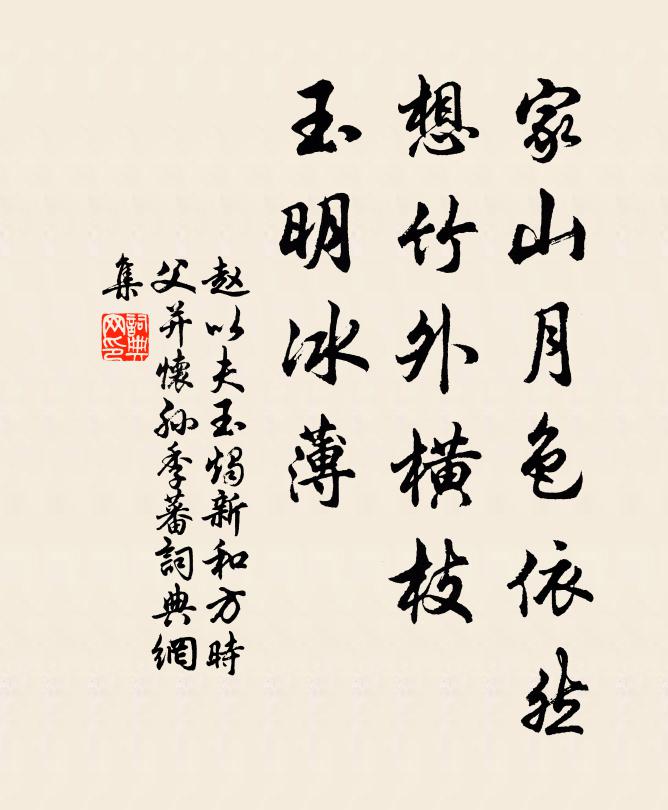 家山月色依然
想竹外横枝
玉明冰薄
赵以夫玉燭新和方時
父并懷孙季蕃詞典網
集
詞典网印